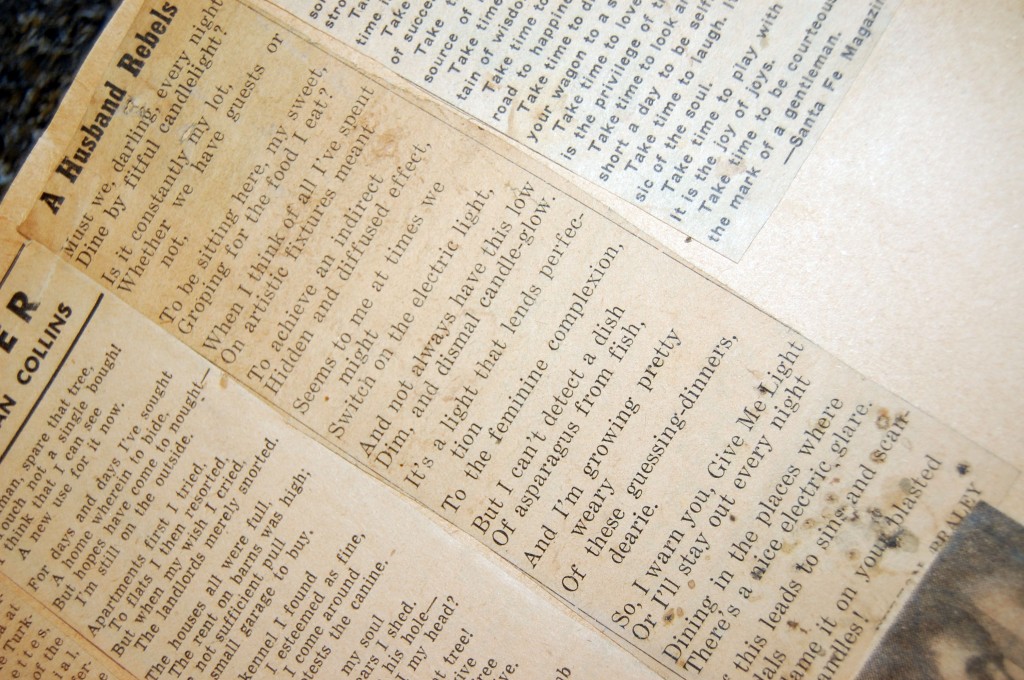 A Husband Rebels
Must we, darling, every night
Dine by fitful candlelight?
Is it constantly my lot,
Whether we have guests or
not,
To be sitting here, my sweet,
Groping for the food I eat?
When I think of all I've spent
On artistic fixtures meant
To achieve an indirect
Hidden and diffused effect,
Seems to me at times we
might
Switch on the electric light,
And not always have this low
Dim, and dismal candle-glow.
It's a light that lends perfec-
tion
To the feminine complexion,
But I can't detect a dish
Of asparagus from fish,
And I'm growing pretty
weary
Of these guessing-dinners,
dearie.
So, I warn you, Give Me Light
Or I'll stay out every night
Dining in the places where
There's a nice electric glare.
this leads to sing and scan-
als
ame it on your blasted
andles!
BRALEY
time
Take
of succe
Take t
source of
Take time
tain of wisdo
Take time to
road to happin
Take time to d
your wagon to a s
Take time to love
is the privilege of
Take time to look ar
short a day to be self
Take time to laugh. I
sic of the soul.
Take time to play with
It is the joy of joys.
Take time to be courteous
the mark of a gentleman.
—Santa Fe Magazi
ER
AN COLLINS
man, spare that tree,
Touch not a single bough!
I think that I can see
A new use for it now.
For days and days I've sought
A home wherein to bide.
But hopes have come to nought—
I'm still on the outside.
Apartments first I tried,
To flats I then resorted,
But when my wish I cried,
The landlords merely snorted.
The houses all were full,
The rent on barns was high;
not sufficient pull
small garage to buy.
kennel I found
I esteemed as fine,
I come around
tests the canine.
my soul
ears I shed.
his hole—
I my head?
t tree!
rive
ree
e.
at
Turk-
of the